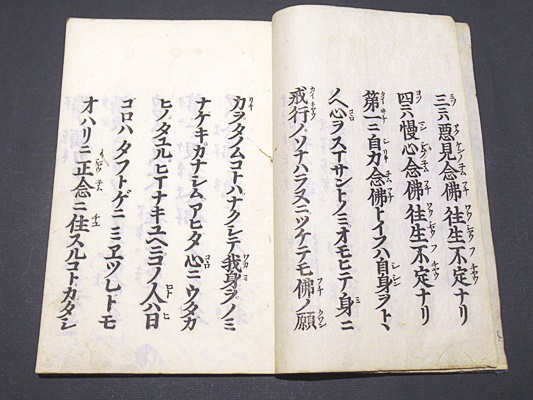 三ニハ惡見念佛往生不定ナリ
四ニハ慢心念佛往生不定ナリ
第一ニ自力念佛トイフハ自身ヲトヽ
ノヘ心ヲスマサントノミオモヒテ身ニ
戒行ノソナハラヌニツケテモ佛ノ願
力ヲタノムコトハナクシテ我身ヲノミ
ナゲキカナシムアヒタ心ニウタカ
ヒノタユルヒマナキユヘニコノ人ハ日
ゴロハタフトゲニミヱツレドモ
オハリニ正念ニ住スルコトカタシ